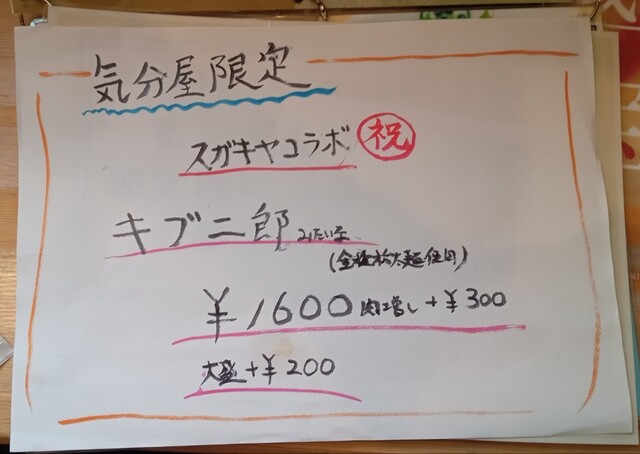 気分屋限定
スガキヤコラボ 祝
キブ二郎 みたいな
(全粒粉太麺使用)
¥1600 肉増し+¥300
大盛+¥200